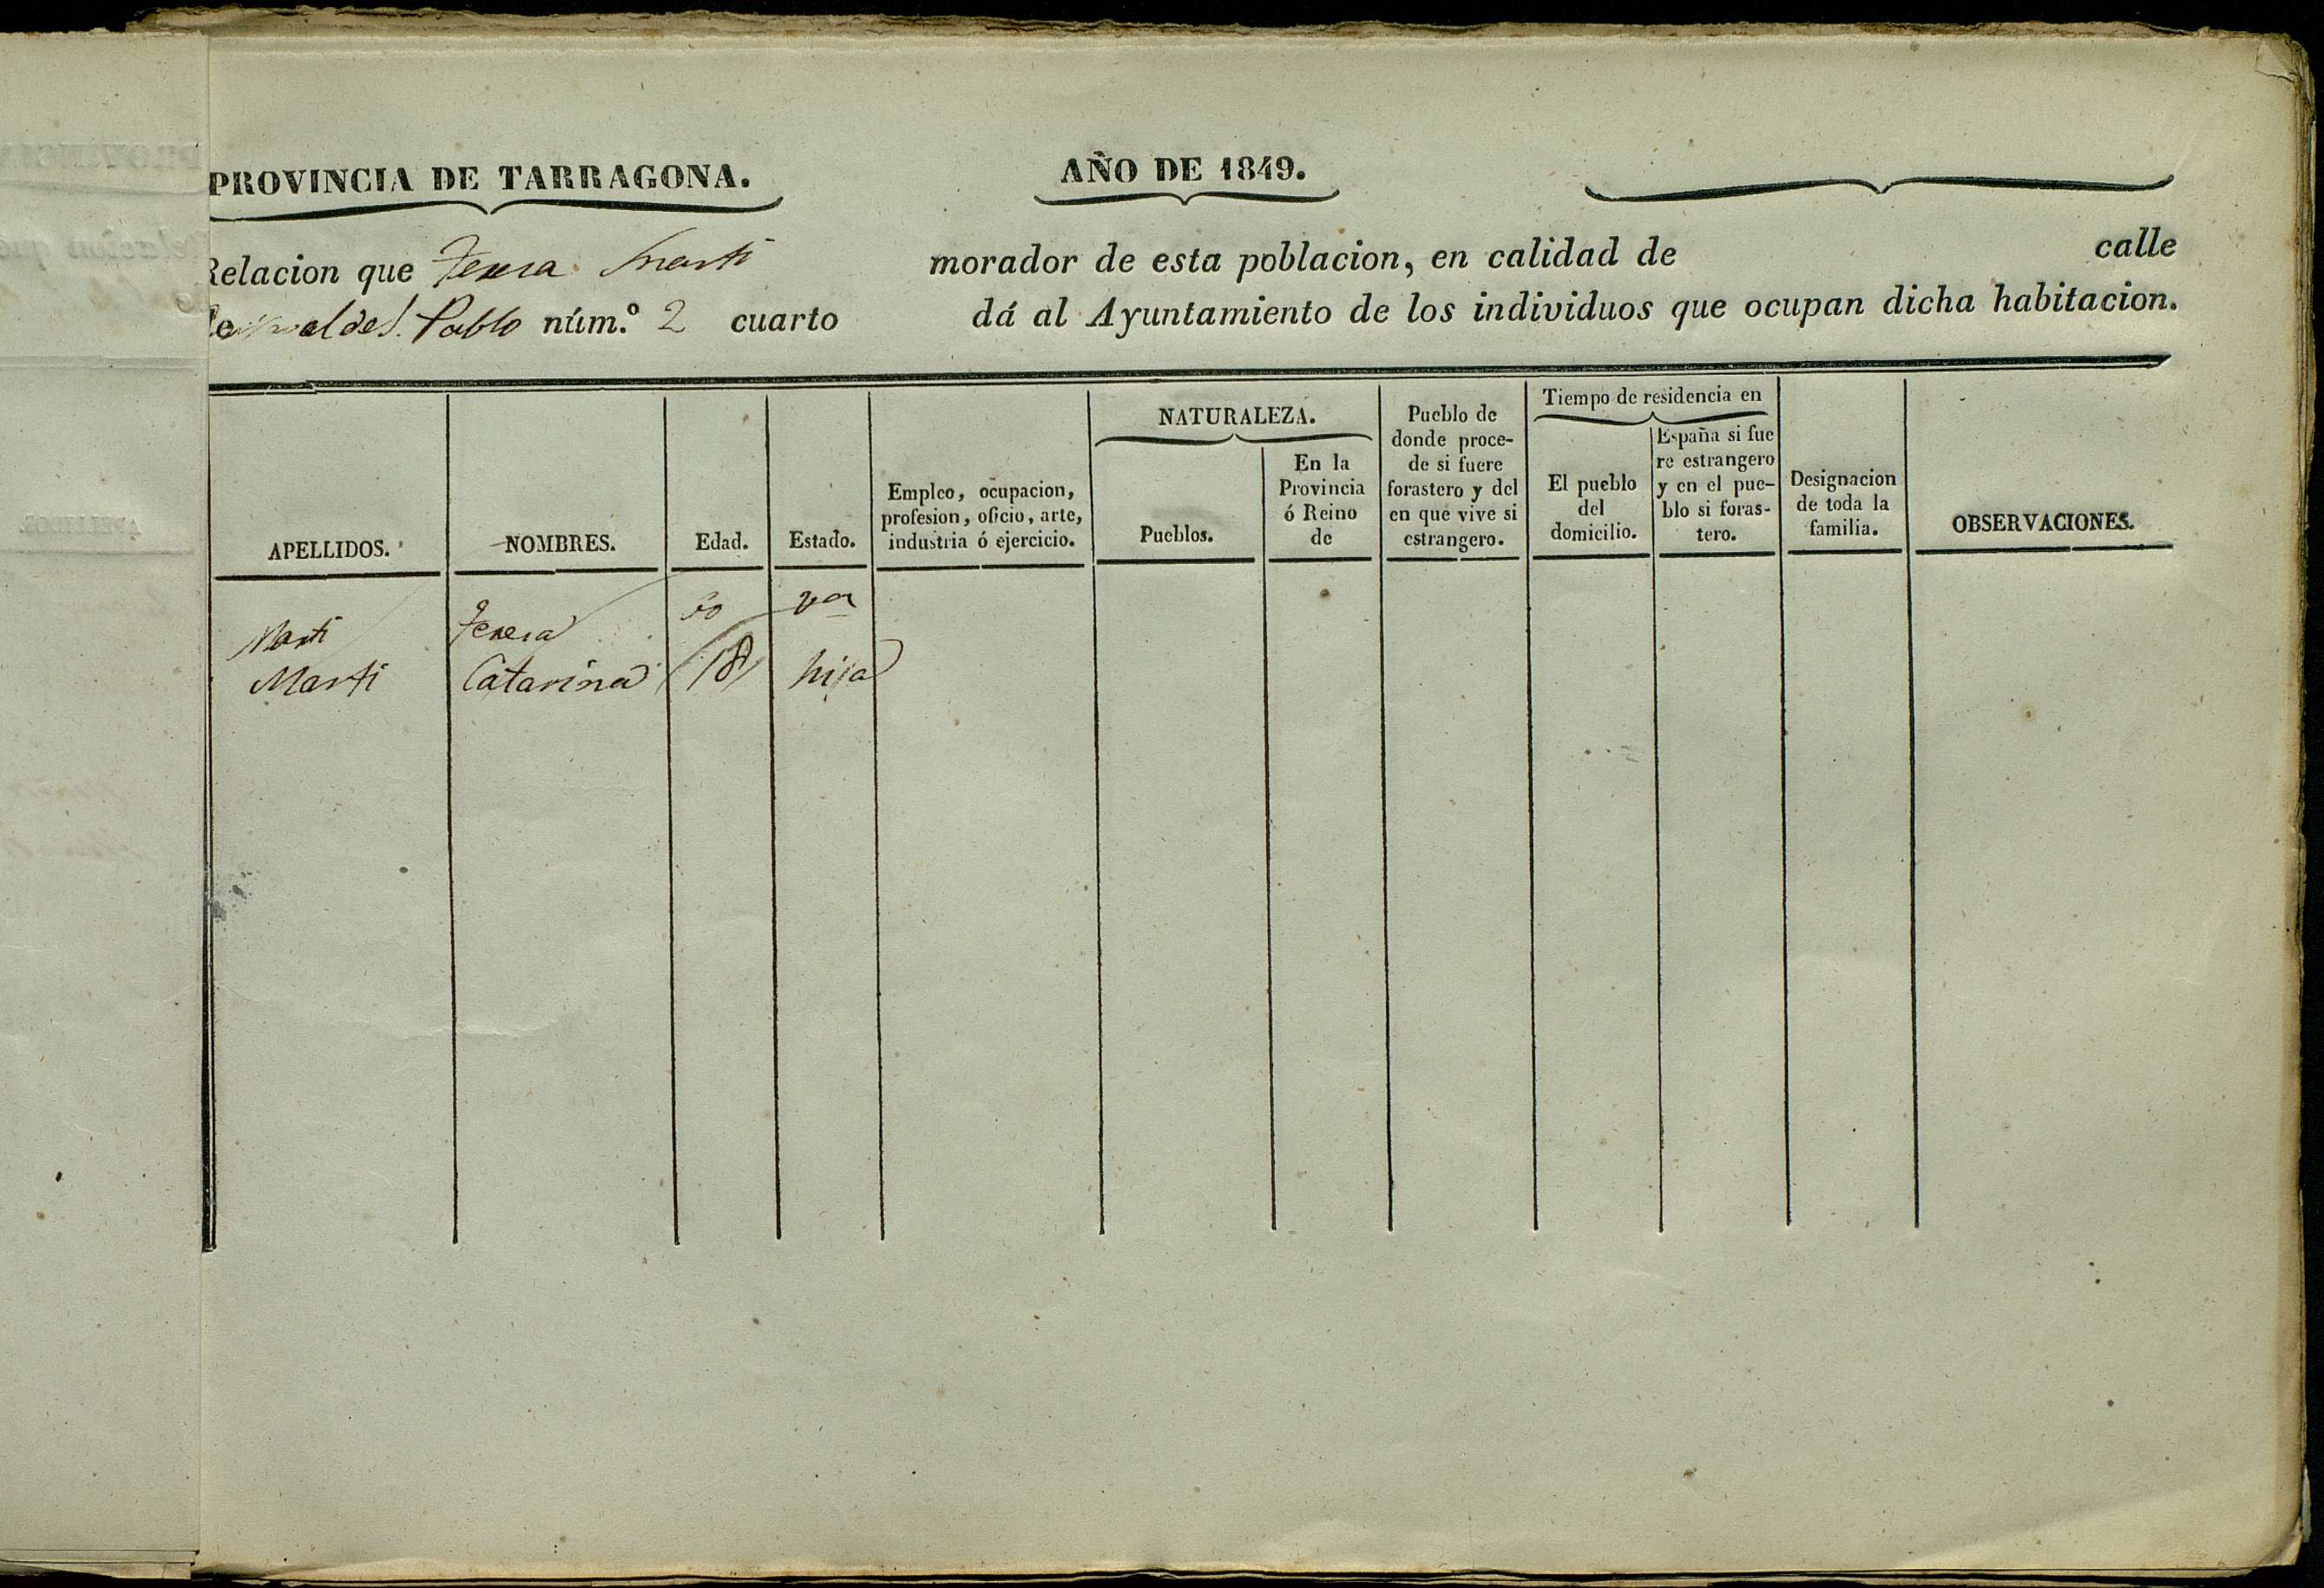 PROVINCIA DE TARRAGONA. AÑO DE 1849.
Relacion que Teresa Marti morador de esta poblacion, en calidad de calle
de S. Pablo núm.º 2 cuarto dá al Ayuntamiento de los individuos que ocupan dicha habitacion.
APELLIDOS.
NOMBRES.
Edad.
Estado.
Empleo, ocupacion,
profesion, oficio, arte,
industria ó ejercicio.
NATURALEZA.
Pueblos.
En la
Provincia
ó Reino
de
Pueblo de
donde proce-
de si fuere
forastero y del
en que vive si
estrangero.
Tiempo de residencia en
El pueblo
del
domicilio.
España si fue
re estrangero
y en el pue-
blo si foras-
tero.
Designacion
de toda la
familia.
OBSERVACIONES.
Marti Teresa
Marti Catarina 18 hija